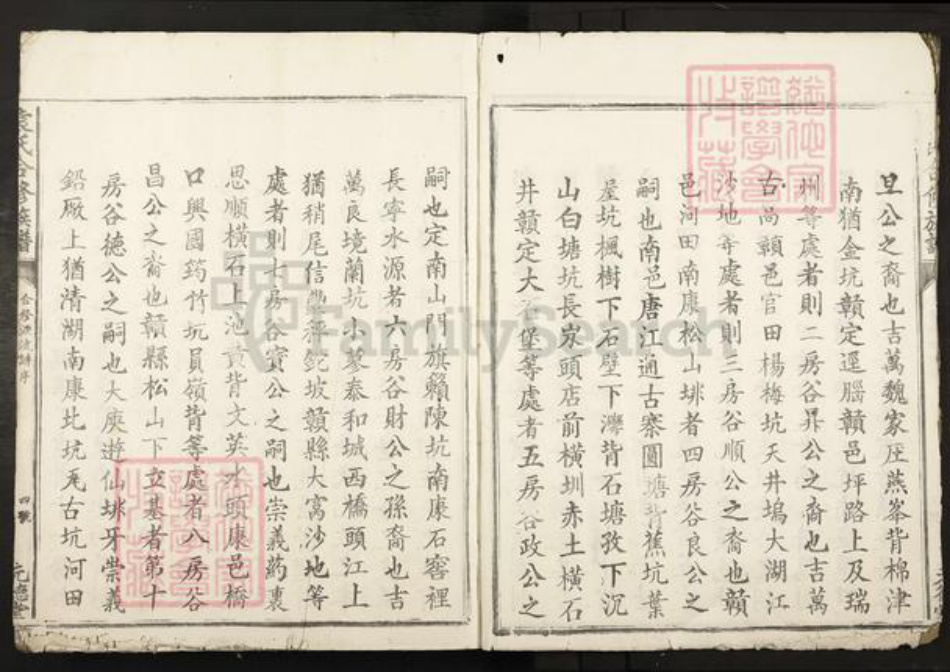 旦公之裔也吉萬魏家庄燕峯背棉津
南猶金坑贛定逕腦贛邑坪路上及瑞
州等處者則二房谷昇公之裔也吉萬
古高贛邑官田楊梅坑天井塢大湖江
沙地等處者則三房谷順公之裔也贛
邑河田南康松山埱者四房谷良公之
嗣也南邑唐江通古寨圓塘背蕉坑葉
屋坑楓樹下石壁下灣背石塘孜下沉
山白塘坑長泉頭店前橫圳赤土橫石
井贛定大石堡等處者五房谷政公之
嗣也定南山門旗賴陳坑南康石窖裡
長寧水源者六房谷財公之孫裔也吉
萬良境蘭坑小蓼泰和城西橋頭江上
猶稍尾信豐秤鉈坡贛縣大窩沙地等
處者則七房谷賓公之嗣也崇義葯裏
思順橫石上池黃背文英水頭康邑橋
口興國筠竹坑員嶺背等處者八房谷
昌公之裔也贛縣松山下立基者第十
房谷德公之嗣也大庾遊仙埱牙崇義
鉛厰上猶清湖南康北坑兎古坑河田
袁氏合修族譜
合修源流譜序
四號
元德堂
FamilySearch